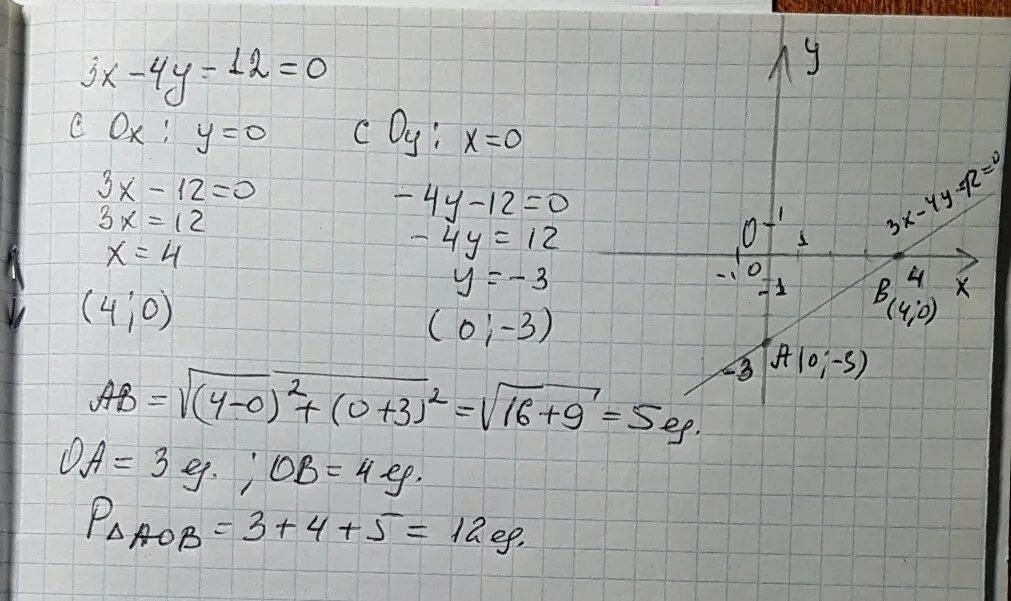 3x-4y-12=0
с Ox: y=0
3x-12=0
3x=12
x=4
(4;0)
с Oy: x=0
-4y-12=0
-4y=12
y=-3
(0;-3)
AB=√((4-0)²+(0+3)²)=√(16+9)=5ед.
OA=3 ед.; OB=4 ед.
P△AOB=3+4+5=12ед.
y
3x-4y-12=0
O 1
1
-1 0
4 x
-1
B
(4;0)
-3 A(0;-3)